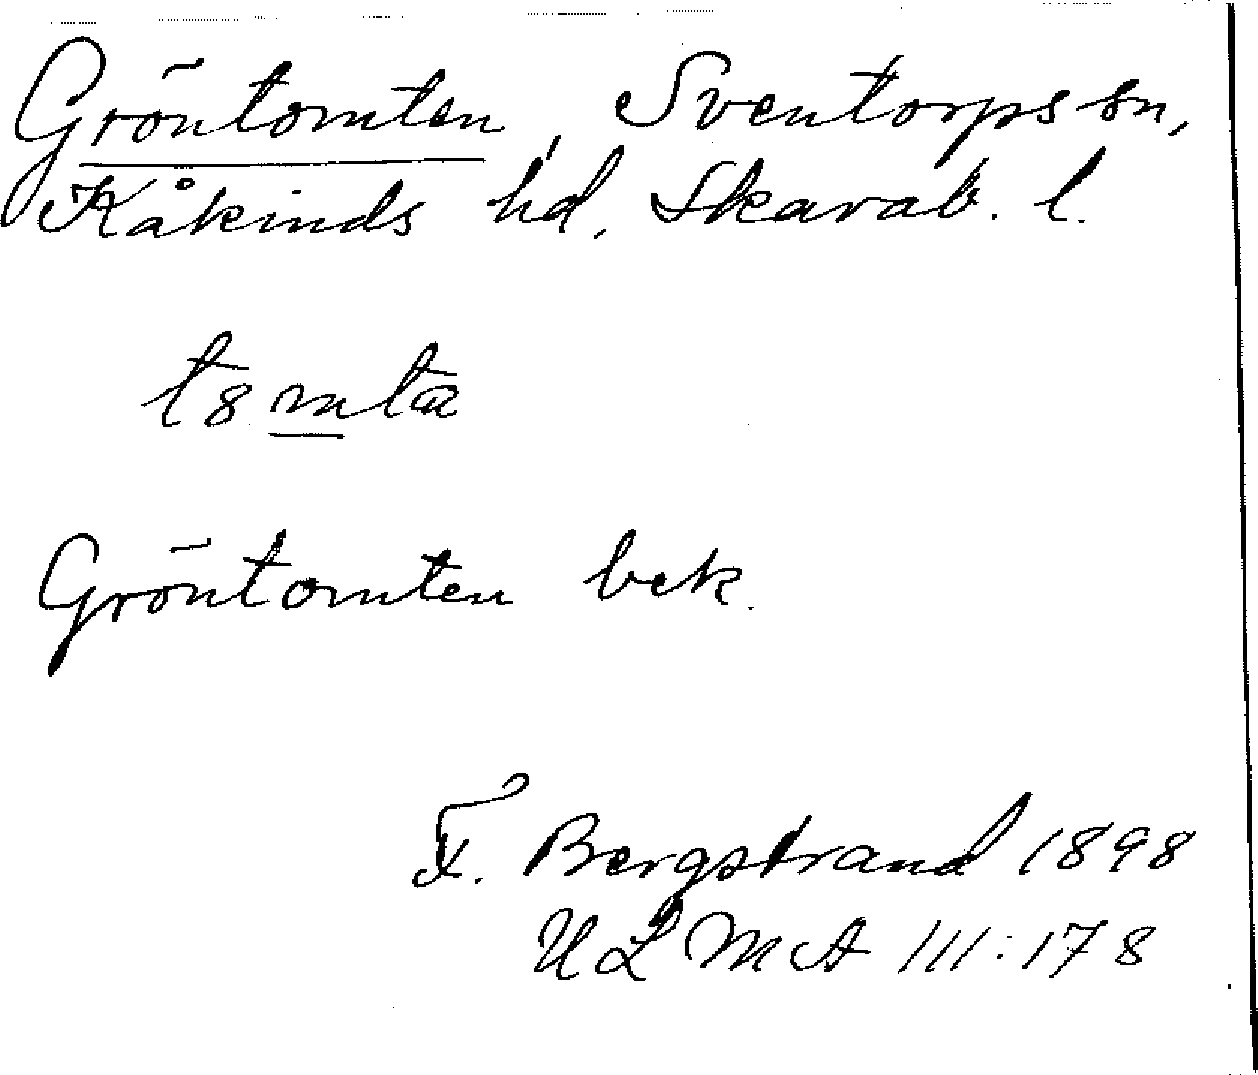 Gröntomten, Sventorps sn,
Kåkinds hd, Skarab. l.
t8mta
Gröntomten bek.
F. Bergstrand 1898
ULMA III:178